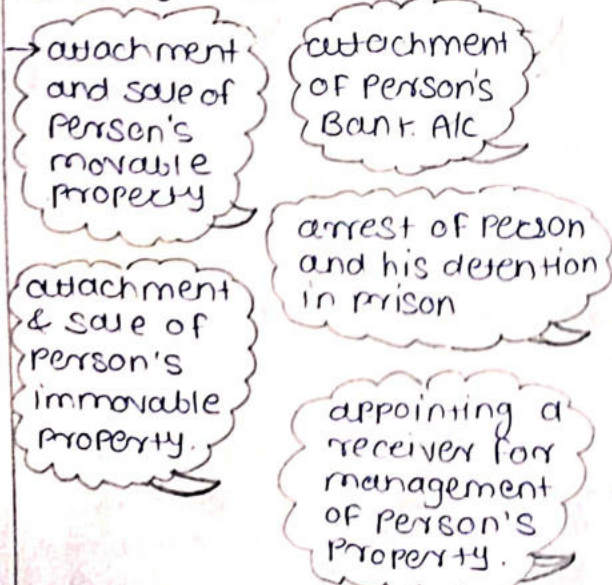 → attachment
and sale of
Person's
movable
property
attachment
of Person's
Bank A/c
arrest of person
and his detention
in prison
attachment
& sale of
Person's
immovable
property.
appointing a
receiver for
management
of Person's
Property.